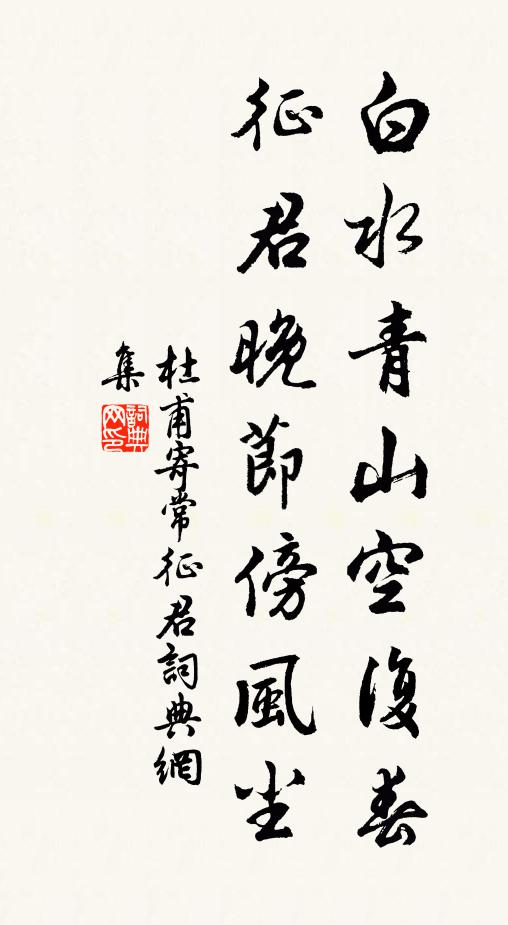 白水青山空復春
征君晚節傍風尘
杜甫寄常征君詞典網
集
詞典
网印